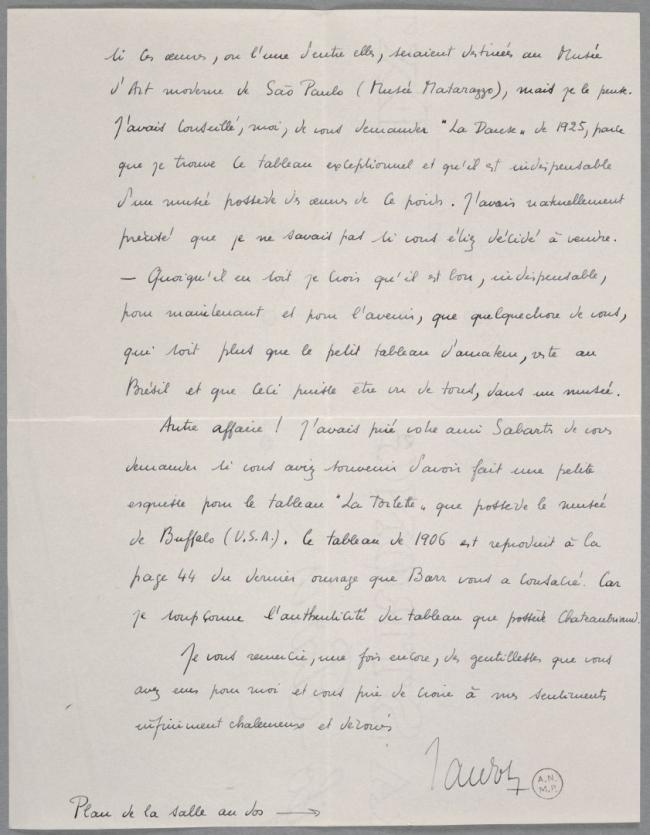 si ces œuvres, ou l'une d'entre elles, seraient destinées au Musée
d'Art moderne de São Paulo (Musée Matarazzo), mais je le pense.
J'avais conseillé, moi, de vous demander "La Danse" de 1925, parce
que je trouve ce tableau exceptionnel et qu'il est indispensable
d'un musée possède des œuvres de ce poids. J'avais naturellement
précisé que je ne savais pas si vous étiez décidé à vendre.
— Quoiqu'il en soit je crois qu'il est bon, indispensable,
pour maintenant et pour l'avenir, que quelquechose de vous,
qui soit plus que le petit tableau d'amateur, reste au
Brésil et que ceci puisse être vu de tous, dans un musée.
Autre affaire ! J'avais prié votre ami Sabartès de vous
demander si vous aviez souvenir d'avoir fait une petite
esquisse pour le tableau "La Toilette" que possède le musée
de Buffalo (U.S.A.). Ce tableau de 1906 est reproduit à la
page 44 du dernier ouvrage que Barr vous a consacré. Car
je soupçonne l'authenticité du tableau que possède Chateaubriand.
Je vous remercie, une fois encore, des gentillesses que vous
avez eues pour moi et vous prie de croire à mes sentiments
infiniment chaleureux et dévoués
A.N.
M.P.
Plan de la salle au dos →